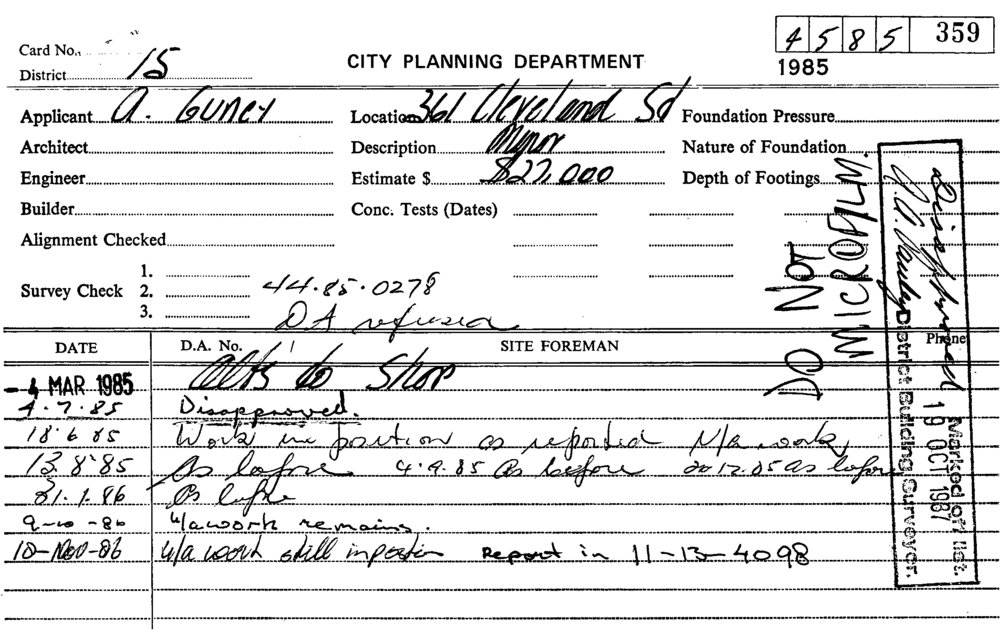 4 5 8 5 359
1985
Card No.
District 15
CITY PLANNING DEPARTMENT
Applicant A. GUNEY
Location 361 Cleveland St
Foundation Pressure
Architect
Description Minor
Nature of Foundation
Engineer
Estimate $ $27,000
Depth of Footings
Builder
Conc. Tests (Dates)
Alignment Checked
Survey Check
1.
2. 44.85.0278
3. DA refused
DO NOT
MICROFILM.
Disapproved
District Building Surveyor.
Marked off list.
19 OCT 1987
DATE D.A. No. SITE FOREMAN Phone
- 4 MAR 1985 Alts to Shop
4.7.85 Disapproved.
18.6.85 Work in position as reported U/a work
13.8.85 As before 4.9.85 As before 20.12.85 as before
31.1.86 As before
9-10-86 U/a work remains.
10-Nov-86 U/a work still in position Report in 11-13-4098